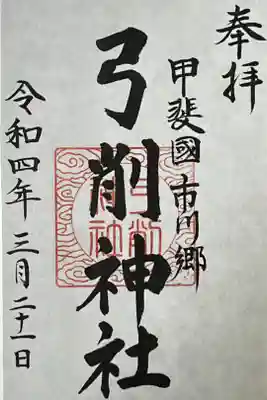 奉拝
甲斐國市川郷
弓削神社
令和四年三月二十一日